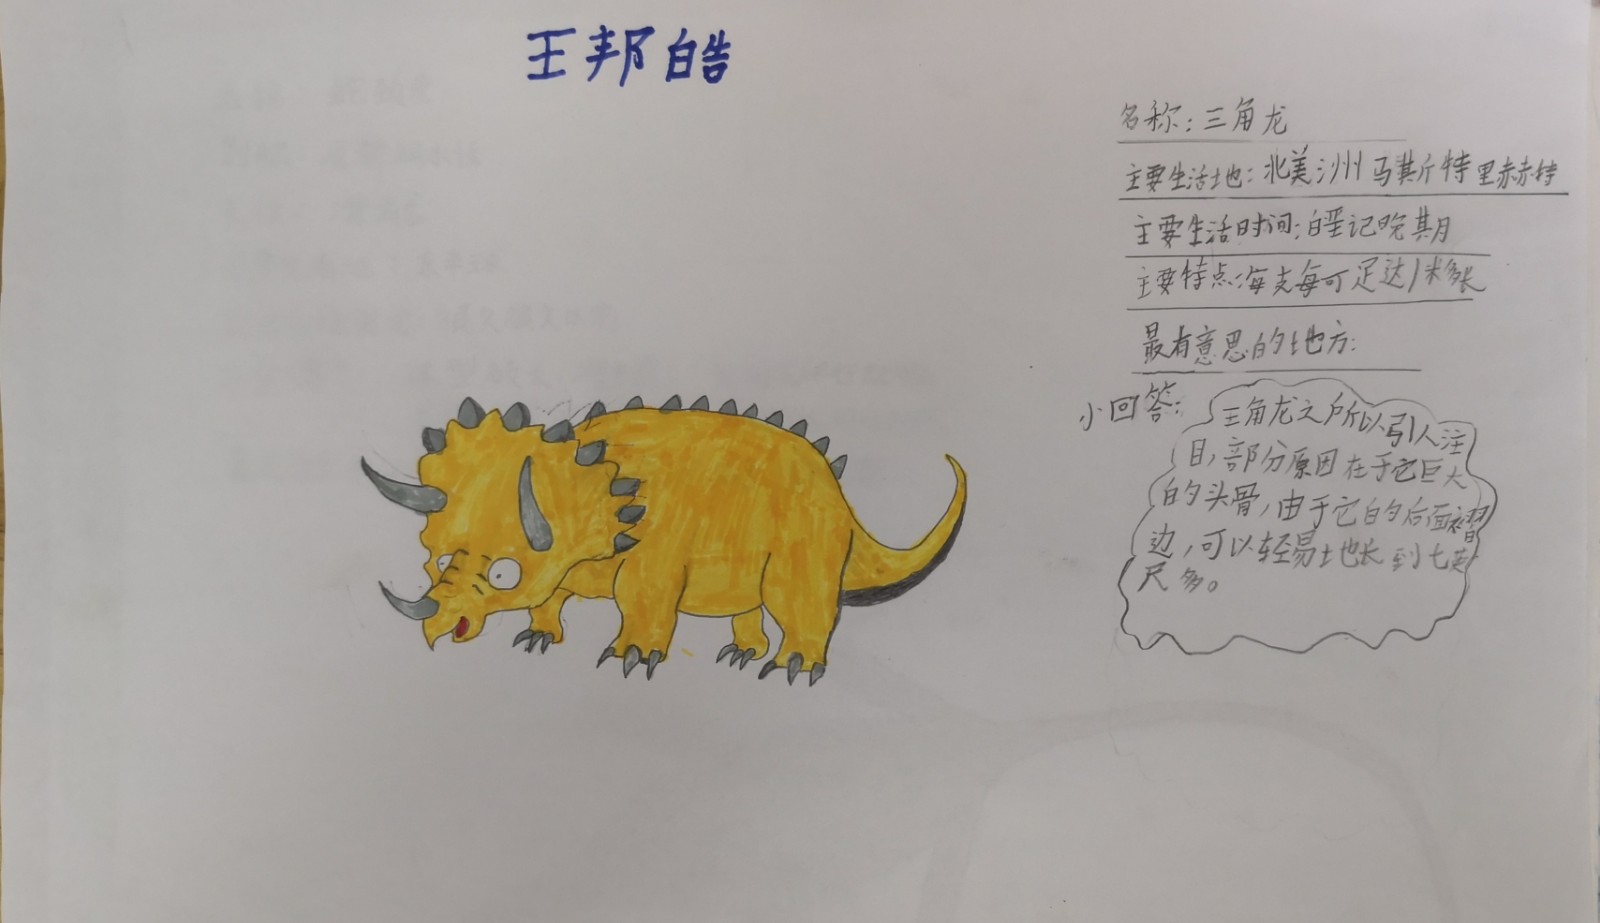 王邦皓
名称:三角龙
主要生活地:北美洲马其斤特里赫赫特
主要生活时间:白垩记晚期
主要特点:每支每可足达1米多长
最有意思的地方:
小回答:
三角龙之所以引人注
目,部分原因在于它巨大
的头骨,由于它的后面褶
边,可以轻易土地长到七英
尺多。